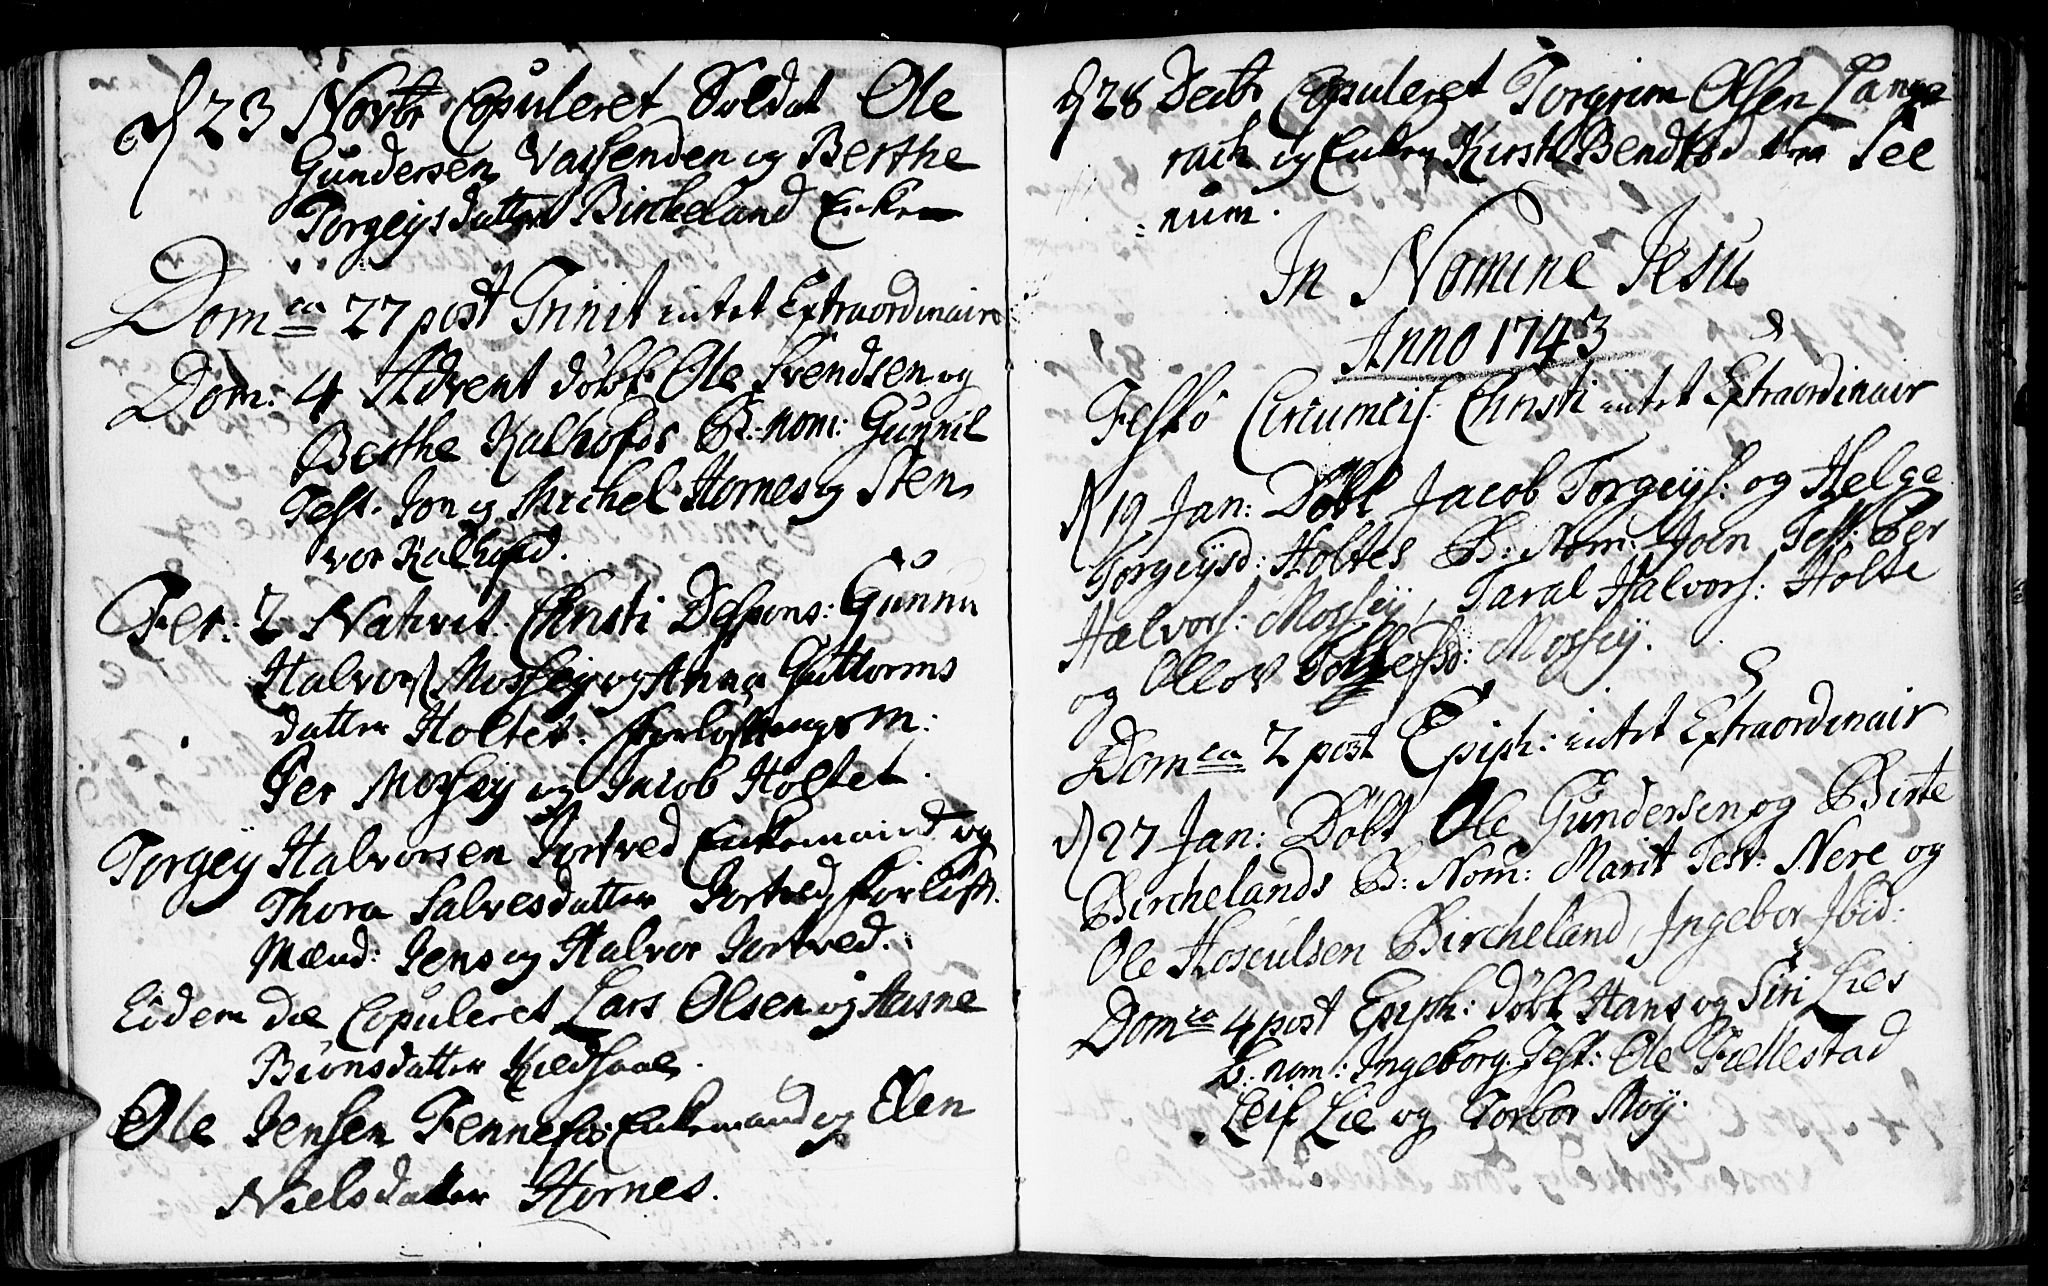 d 23 Novbr Copuleret Soldat Ole
Gundersen Vassenden og Berthe
Torgeysdatter Bircheland Enke
Domca 27 post Trinit intet Extraordinair
Dom: 4 Advent döbt Ole Svendsen og
Berthe Kalhofds B: nom: Gunnil
Test. Jon og Michel Hornes og Sten
vor Kalhofd.
Fer: 2 Nativit: Christi Despons: Gunnu
Halvors Mossey og Anna Guttorms
datter Holtet. Forloftnings M:
Per Mossey og Jacob Holtet.
Torgey Halvorsen Jortved Enkemand og
Thora Salvesdatter Jortved, Forlofts.
Mænd: Jens og Halvor Jortved.
Eodem die Copuleret Lars Olsen og Aasne
Biönsdatter Kiedsaae.
Ole Jensen Fennefos Enkemand og Elen
Nielsdatter Hornes.
d 28 Decbr Copuleret Torgrim Olsen Lange
rach og Enken Kirsti Bendtsdatter Tee
= num.
In Nomine Jesu
Anno 1743
Festo Circumcis: Christi intet Extraordinair
d 19 Jan: Döbt Jacob Torgeys: og Helge
Torgeysd: Holtes B: Nom: Joen Test: Per
Halvors: Mossey, Taral Halvors: Holte
og Ollov Tollefsd: Mossey.
Domca 2 post Epiph: intet Extraordinair
d 27 Jan: Döbt Ole Gundersen og Birte
Birchelands B: Nom: Marit Test: Nere og
Ole Hosculsen Bircheland, Ingebor Ibid:
Domca 4 post Epiph: döbt Hans og Siri Lies
B: nom: Ingeborg. Test: Ole Fiellestad
Leif Lie og Torbor Moy.